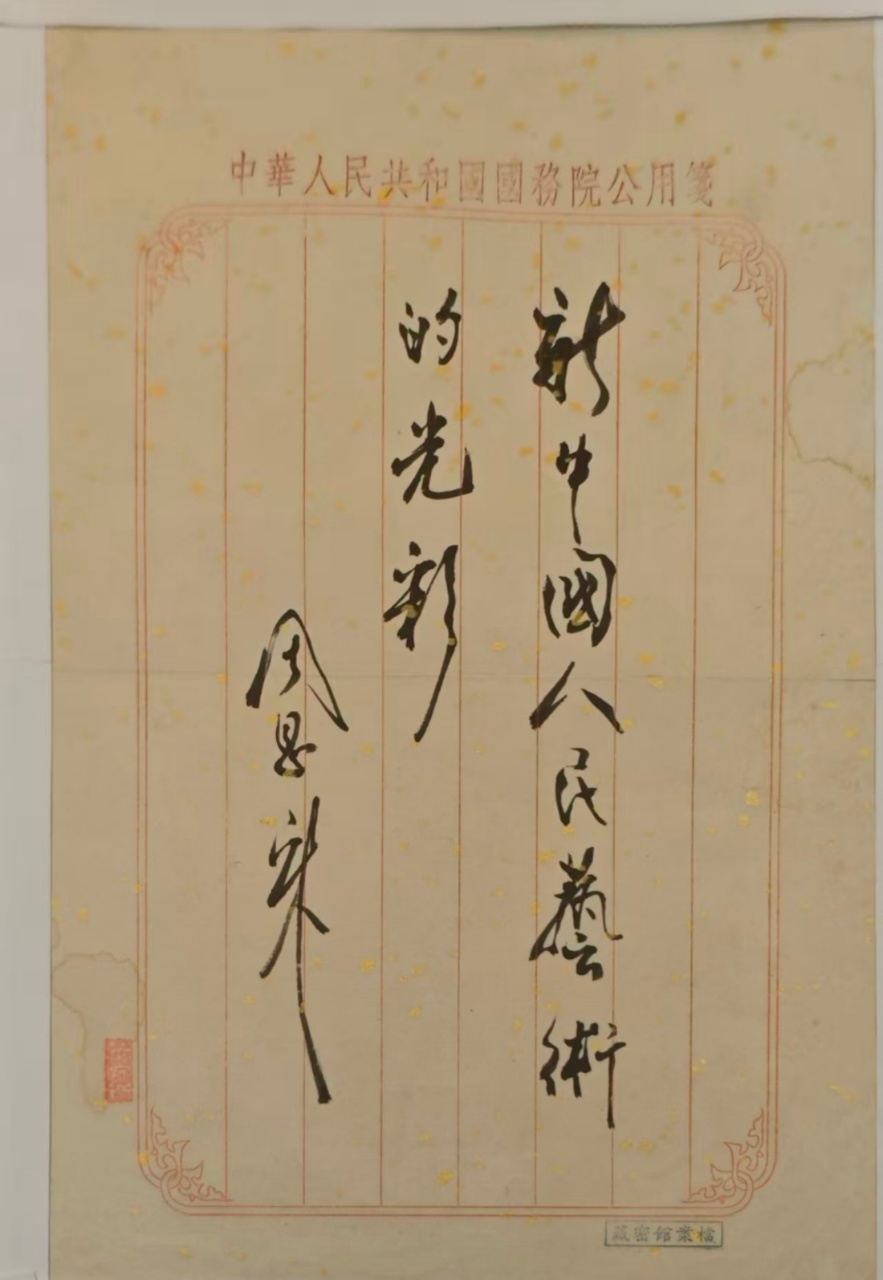 中華人民共和國國務院公用箋
新中國人民藝術
的光彩
周恩來
檔案館密藏